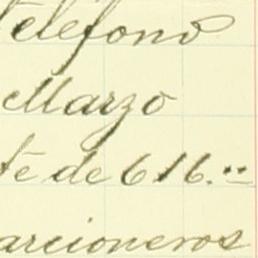 teléfono
Marzo
te de 616."
arcioneros